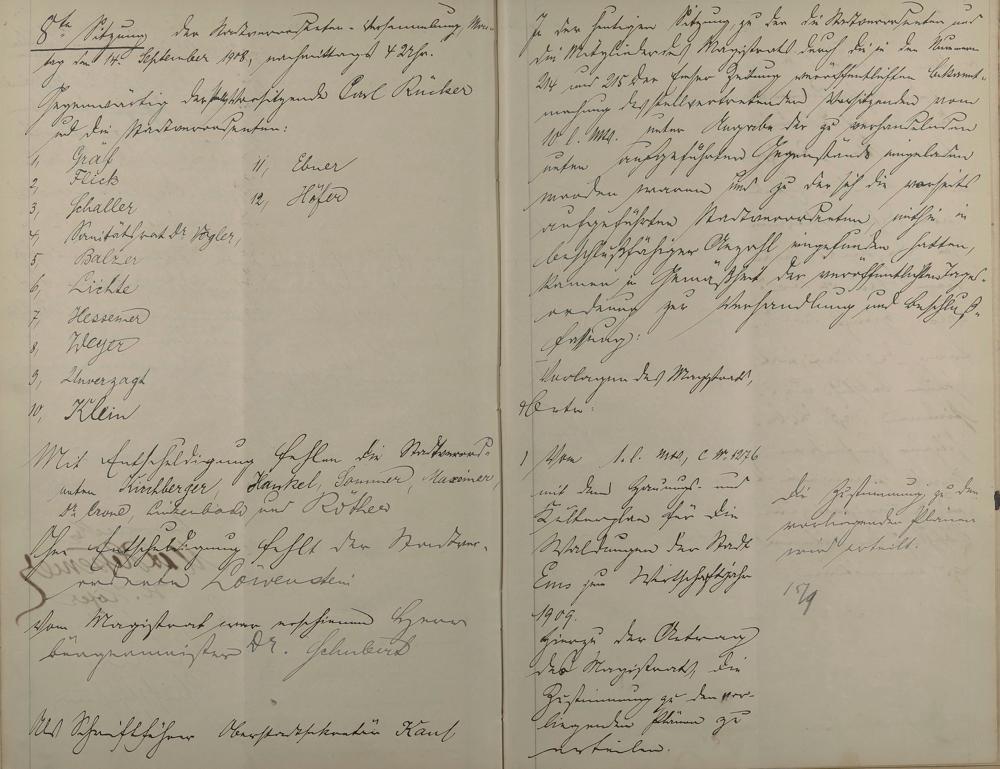 8te Sitzung der Stadtverordneten-Versammlung, Mon-
tag den 14. September 1908, nachmittags 4 Uhr.
Gegenwärtig der Vorsitzende Carl Rücker
und die Stadtverordneten:
1, Gräf
2, Flick
3, Schaller
4, Sanitätsrat Dr. Vogler,
5, Balzer
6, Lichte
7, Hessemer
8, Weyer
9, Unverzagt
10, Klein
11, Ebner
12, Höfer
Mit Entschuldigung fehlen die Stadtverord-
neten Kirchberger, Hankel, Sommer,
und Röther
Ohne Entschuldigung fehlt der Stadtver-
ordnete Löwenstein
Vom Magistrat war erschienen Herr
Bürgermeister Dr. Schubert
Als Schriftführer Oberstadtsekretär Kaul
In der heutigen Sitzung, zu der die Stadtverordneten und
die Mitglieder des Magistrats durch die in den Nummern
214 und 215 der Emser Zeitung veröffentlichten Bekannt-
machung des stellvertretenden Vorsitzenden vom
10. l. Mts. unter Angabe der zu verhandelnden
unten aufgeführten Gegenstände eingeladen
worden waren und zu der sich die vorseits
aufgeführten Stadtverordneten, mithin in
beschlußfähiger Anzahl eingefunden hatten,
kamen in Gemäßheit der veröffentlichten Tages-
ordnung zur Verhandlung und Beschluß-
fassung:
Vorlagen des Magistrats,
1 Vom 1. l. Mts, C Nr. 1276
mit dem Hauungs- und
Kulturplan für die
Waldungen der Stadt
Ems zum Wirtschaftsjahr
1909.
Hierzu der Antrag
des Magistrats, die
Zustimmung zu den vor-
liegenden Plänen zu
erteilen.
Die Zustimmung zu den
vorliegenden Plänen
wird erteilt.